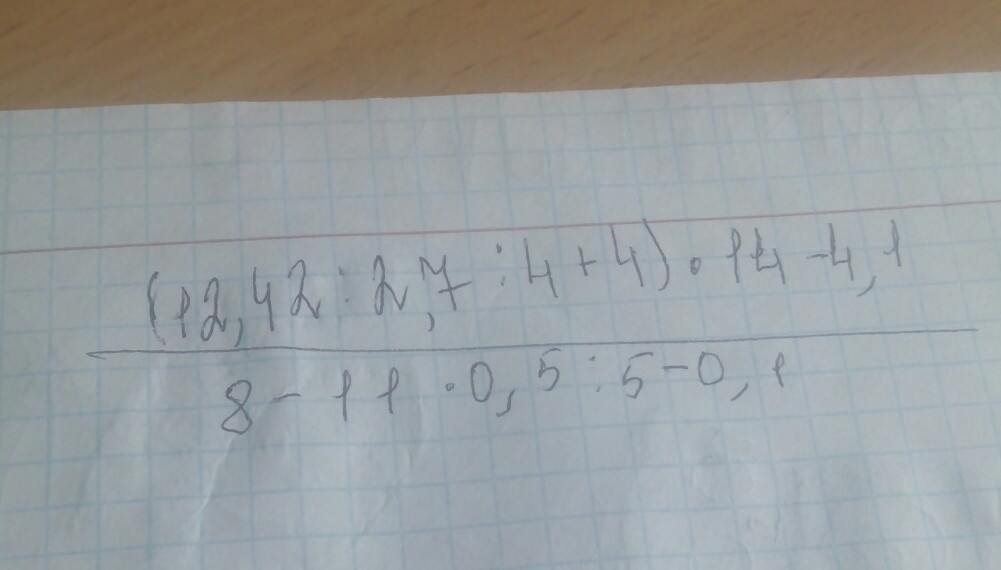 (12,42 : 2,7 : 4 + 4) · 14 - 4,1
8 - 11 · 0,5 : 5 - 0,1